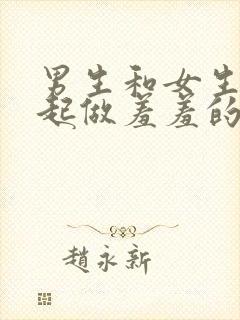 男生和女生
起做羞羞的
趙永新